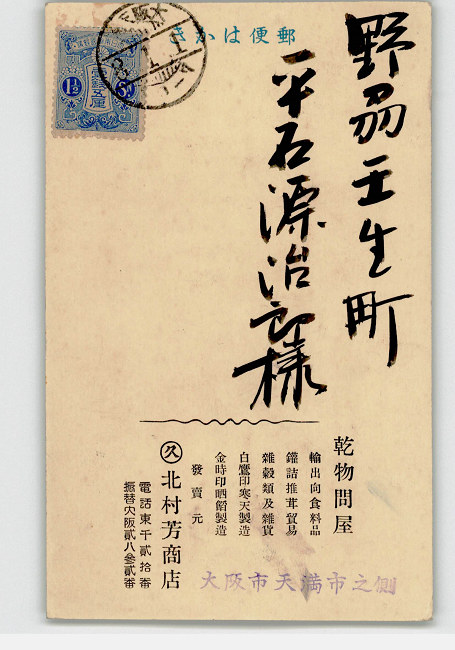 きかは便郵
野州壬生町
平石源治郎様
乾物問屋
輸出向食料品
鑵詰推茸貿易
雜穀類及雜貨
白鷺印寒天製造
金時印晒餡製造
發賣元
久 北村芳商店
電話東千貳拾番
振替大阪貳八參貳番
大阪市天満市之側
1½ 1½
大阪